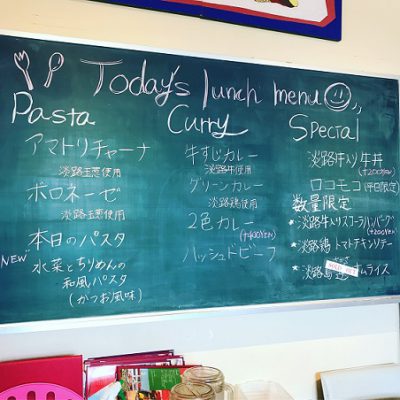 Today's lunch menu
Pasta
アマトリチャーナ
淡路玉葱使用
ボロネーゼ
淡路玉葱使用
本日のパスタ
NEW
水菜とちりめんの
和風パスタ
(かつお風味)
Curry
牛すじカレー
淡路牛使用
グリーンカレー
淡路鶏使用
2色カレー
(+400YEN)
ハッシュドビーフ
Special
淡路牛入り牛丼
(+200YEN)
ロコモコ(平日限定)
数量限定
★淡路牛入りスコーラハンバーグ
(+200YEN)
★淡路鶏トマトチキンソテー
★淡路島
オムライス